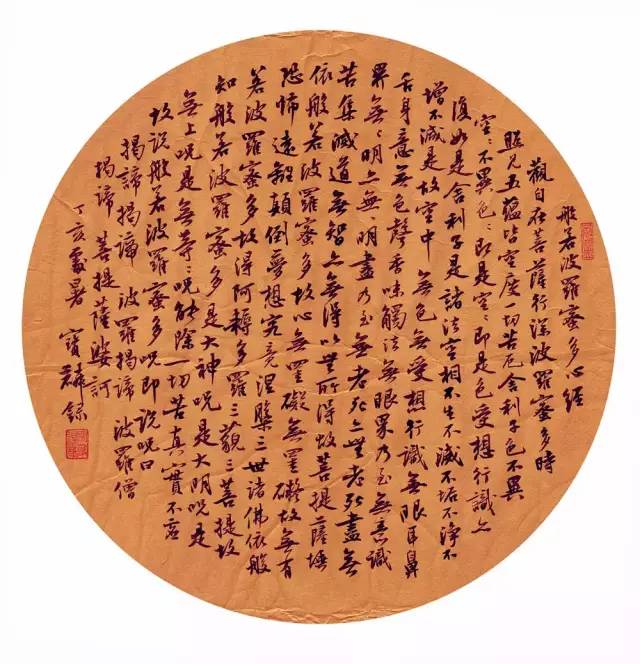 般若波羅蜜多心經
觀自在菩薩行深波羅蜜多時
照見五蘊皆空度一切苦厄舍利子色不異
空々不異色々即是空々即是色受想行識亦
復如是舍利子是諸法空相不生不滅不垢不淨不
增不減是故空中無色無受想行識無眼耳鼻
舌身意無色聲香味觸法無眼界乃至無意識
界無々明亦無明盡乃至無老死亦無老死盡無
苦集滅道無智亦無得以無所得故菩提薩埵
依般若波羅蜜多故心無罣礙無罣礙故無有
恐怖遠離顛倒夢想究竟涅槃三世諸佛依般
若波羅蜜多故得阿耨多羅三藐三菩提故
知般若波羅蜜多是大神呪是大明呪是
無上呪是無等々呪能除一切苦真實不虛
故說般若波羅蜜多呪即說呪曰
揭諦揭諦 波羅揭諦 波羅僧
揭諦 菩提薩婆訶
丁亥處暑 寶麟錄